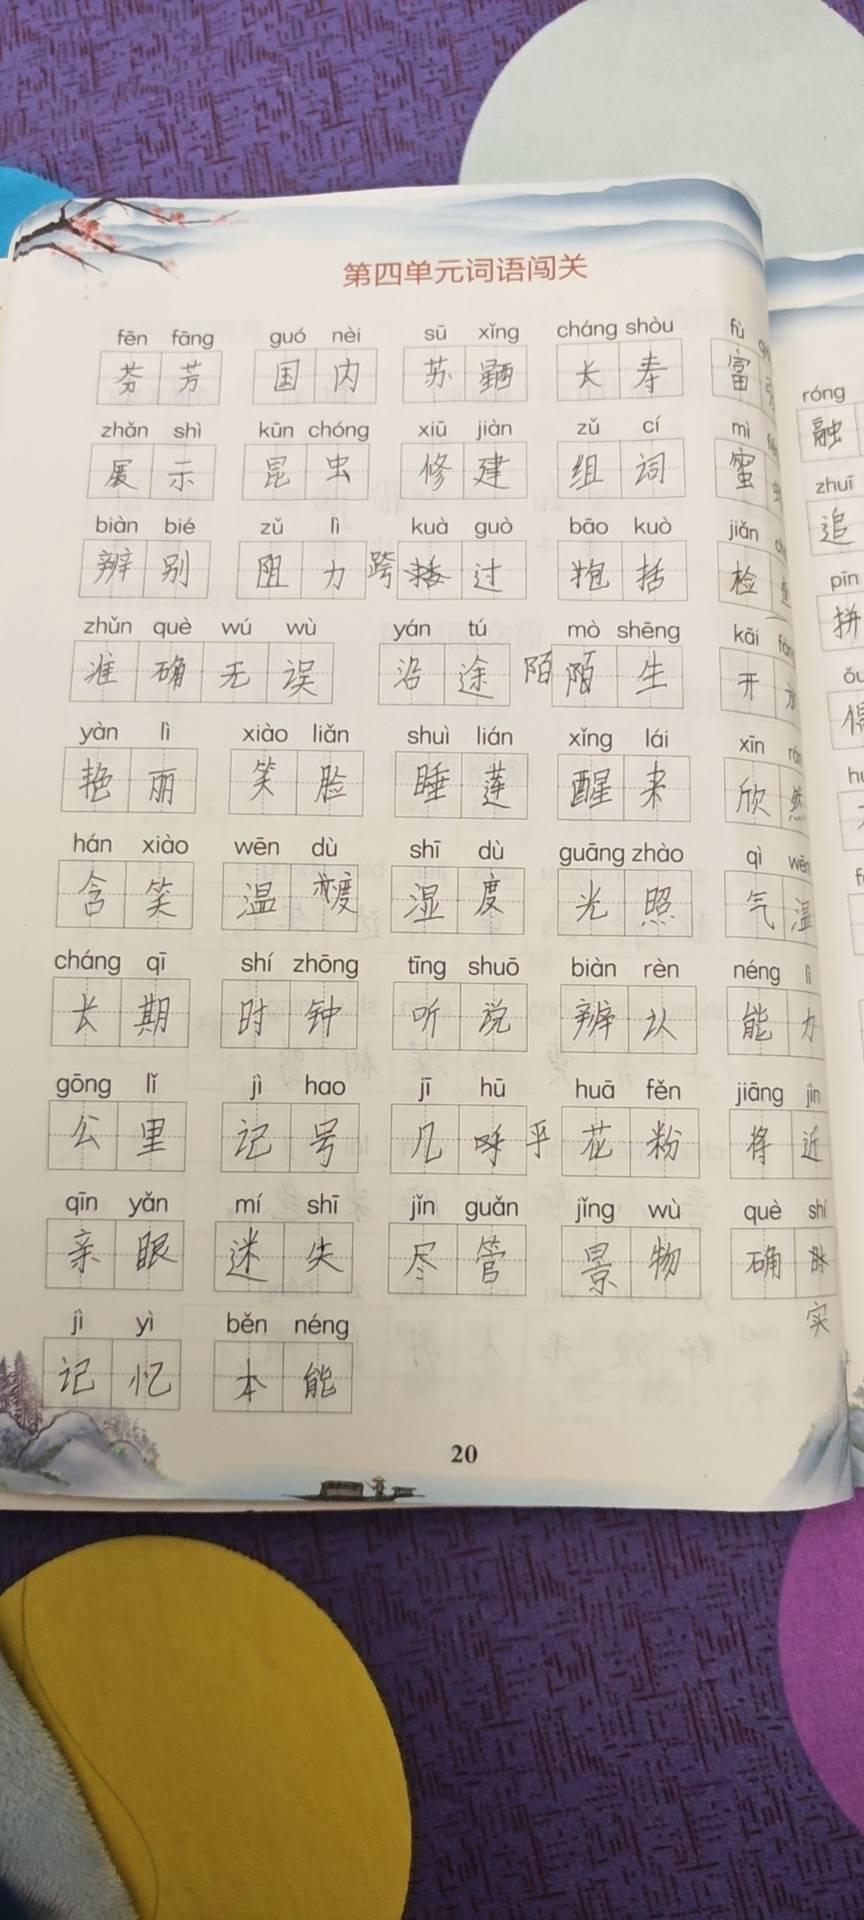 第四单元词语闯关
fēn fāng guó nèi sū xǐng cháng shòu fù
芬 芳 国 内 苏 长 寿 富
róng
融
zhǎn shì kūn chóng xiū jiàn zǔ cí mì
展 示 昆 虫 修 建 组 词 蜜
zhuī
追
biàn bié zǔ lì kuà guò bāo kuò jiǎn
辨 别 阻 力 跨 过 括 检
pīn
拼
zhǔn què wú wù yán tú mò shēng kāi
准 确 无 误 沿 途 陌 陌 生 开
yàn lì xiào liǎn shuì lián xǐng lái xīn
艳 丽 笑 脸 睡 莲 醒 来 欣 然
hán xiào wēn dù shī dù guāng zhào qì wēn
含 笑 温 度 湿 度 光 照 气 温
cháng qī shí zhōng tīng shuō biàn rèn néng lì
长 期 时 钟 听 说 辨 认 能 力
gōng lǐ jì hao jī hū huā fěn jiāng jìn
公 里 记 号 几 呼 乎 花 粉 将 近
qīn yǎn mí shī jǐn guǎn jǐng wù què shí
亲 眼 迷 失 尽 管 景 物 确
实
jì yì běn néng
记 忆 本 能
20